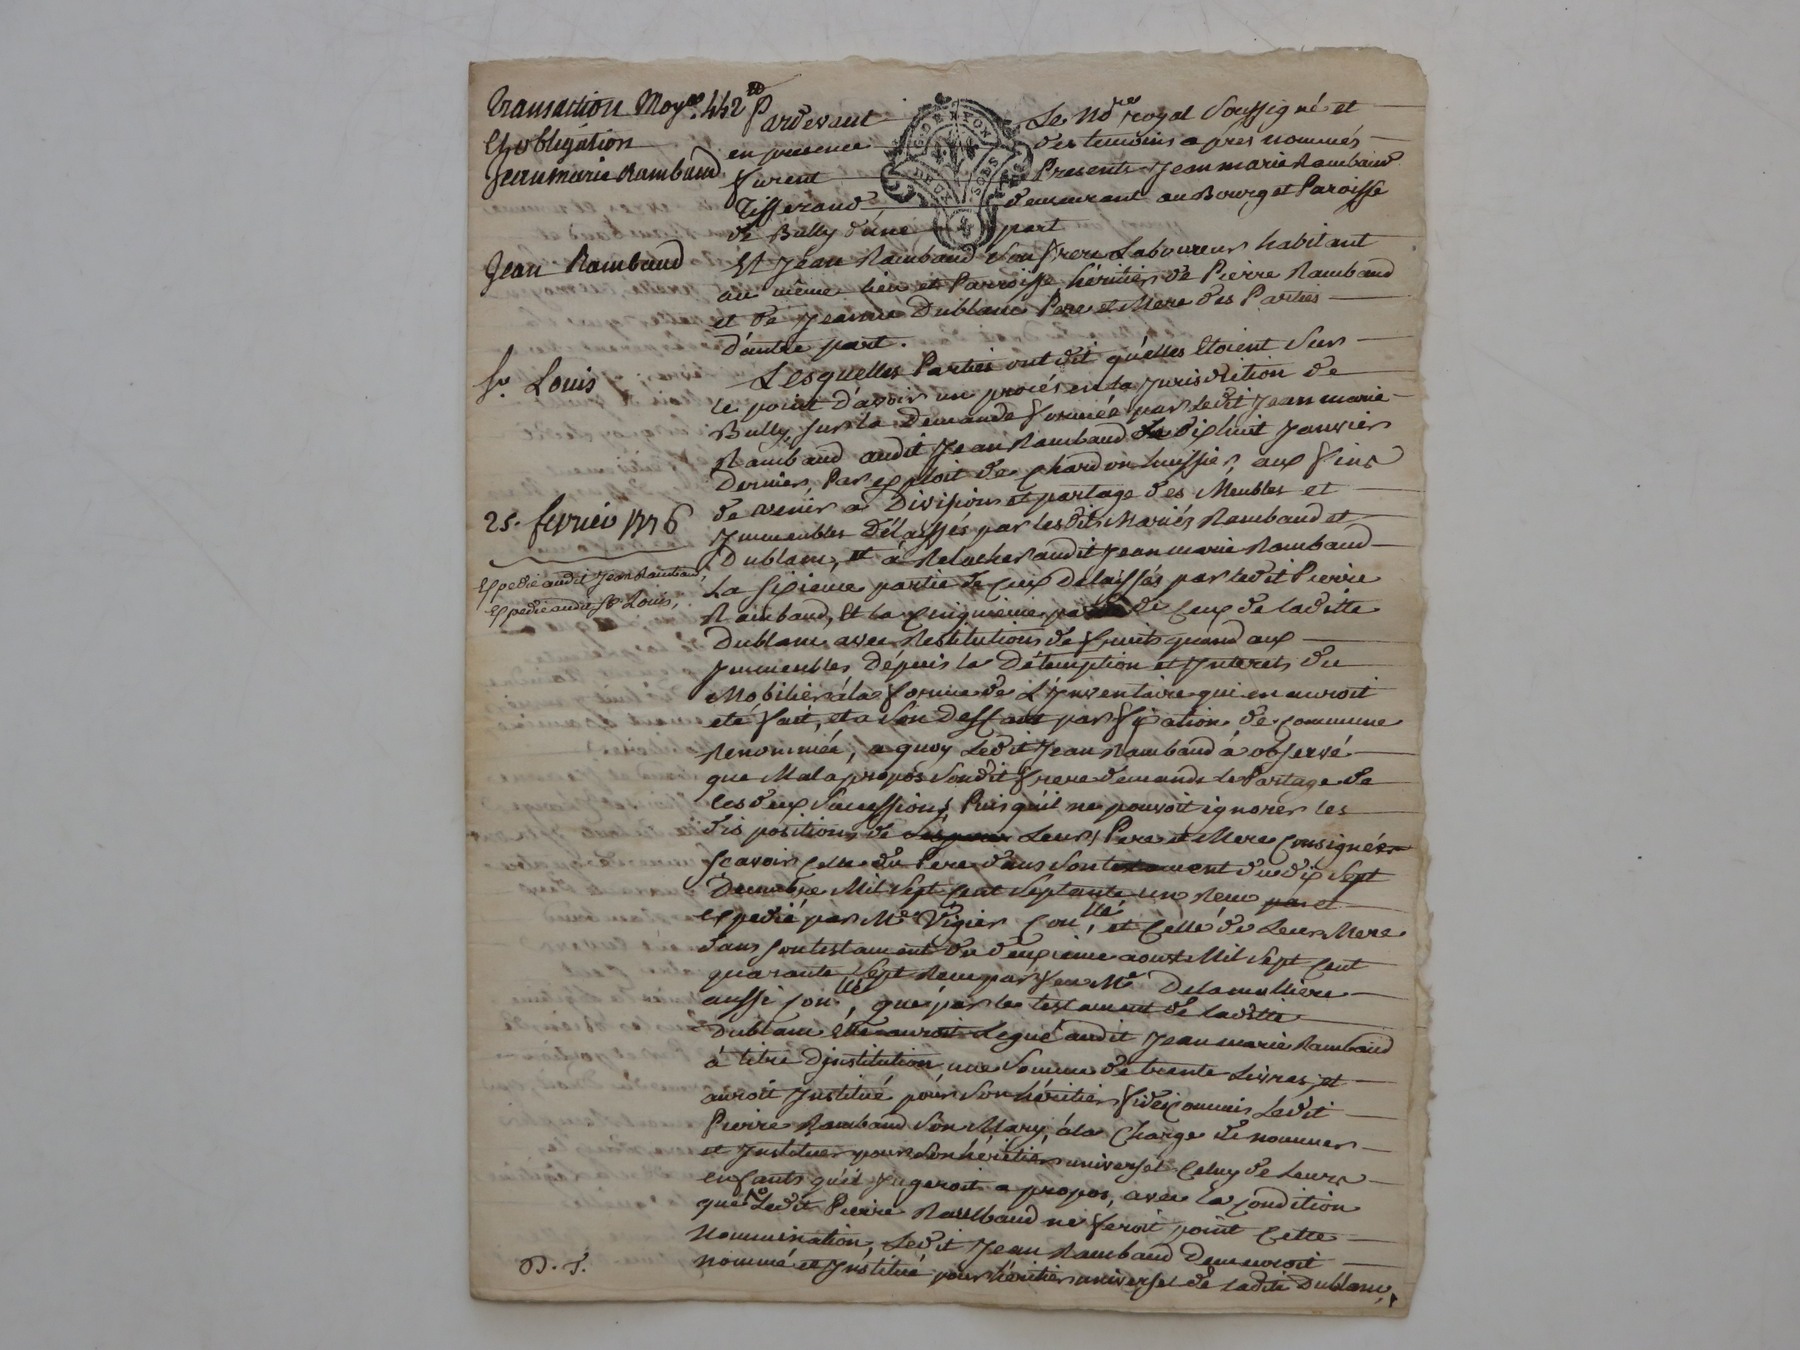 Transaction Moy.ⁿᵗ 442ᵗᵗ
Et obligation
Jeanmarie Rambaud
Jean Rambaud
Sr. Louis
25. fevrier 1776
Expedié audit Jean Rambaud,
Expedié audit Sr. Louis,
G. DE LYON
DEUX SOLS
Pardevant Le Nore royal Soussigné et
en presence des temoins apres nommés
furent Presents Jeanmarie Rambaud
Tisserand demeurant au Bourg et Paroisse
de Bully d'une part
Et Jean Rambaud Son frere Laboureur habitant
au même lieu et Parroisse héritier de Pierre Rambaud
et de Jeanne Dublanc Pere et Mere des Parties
d'autre part.
Lesquelles Parties ont dit qu'elles Etoient Sur
le point D'avoir un procés en la Jurisdition de
Bully, sur la Demande formée par ledit Jeanmarie
Rambaud audit Jean Rambaud Le dixhuit Janvier
Dernier, Par exploit de Chardon huissier, aux fins
de venir a Division et partage des Meubles et
Immeubles Délaissés par lesdits Mariés Rambaud et
Dublanc, et à Relacher audit Jeanmarie Rambaud
La Sixieme partie de Ceux delaissés par ledit Pierre
Rambaud, Et la Cinquieme partie de Ceux de laditte
Dublanc avec Restitution de fruits quand aux
Immeubles Dépuis la Détemption et Interets du
Mobilier à la forme de L'Inventaire qui en auroit
eté fait, et a Son Deffaut par fixation de commune
Renommée, a quoy Ledit Jean Rambaud à observé
que Mal a propos Sondit frere demande Le Partage de
Ces deux Successions, Puisqu'il ne pouvoit ignorer les
dispositions de Leurs Pere et Mere Consignées
Scavoir Celle du Pere dans Son testament du dix Sept
Decembre Mil Sept Cent Septante un Recu par et
Expedié par Me Vigier Conlle, et Celle de Leur Mere
dans Son testament du deuxieme aoust Mil Sept Cent
quarante Sept Recu par feu Me Delamolliere
aussi Conlle, que par le testament de laditte
Dublanc Elle auroit Legué audit Jeanmarie Rambaud
à titre D'institution, une Somme de trente Livres, et
auroit Institué pour Son héritier fideicommis Ledit
Pierre Rambaud Son Mary, à la Charge de nommer
et Instituer pour Son héritier universel Celuy de Leurs
enfants qu'il Jugeroit a propos, avec la Condition
que Ledit Pierre Rambaud ne feroit point Cette
Nommination, Ledit Jean Rambaud Demeuroit
nommé et Institué pour héritier universel de ladite Dublanc,